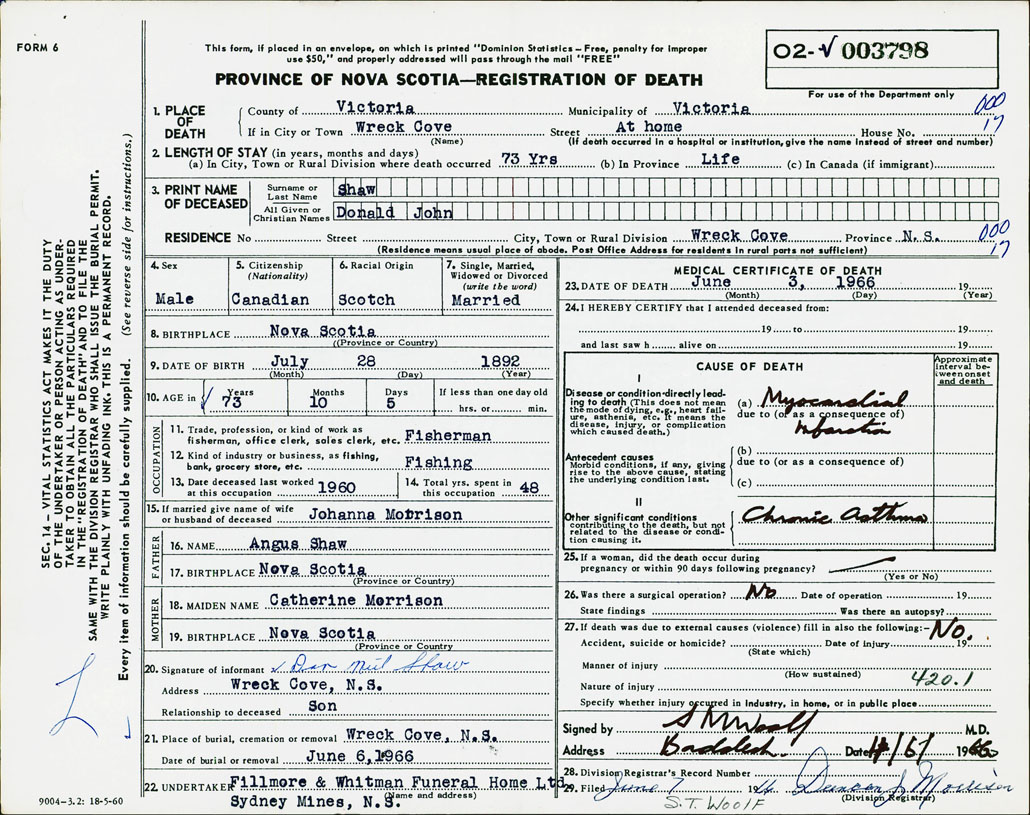 FORM 6
This form, if placed in an envelope, on which is printed "Dominion Statistics – Free, penalty for improper
use $50," and properly addressed will pass through the mail "FREE"
PROVINCE OF NOVA SCOTIA—REGISTRATION OF DEATH
02-√ 003798
For use of the Department only
1. PLACE OF DEATH
County of Victoria Municipality of Victoria 000
If in City or Town Wreck Cove Street At home House No. 17
(Name) (If death occurred in a hospital or institution, give the name instead of street and number)
2. LENGTH OF STAY (in years, months and days)
(a) In City, Town or Rural Division where death occurred 73 Yrs (b) In Province Life (c) In Canada (if immigrant)
3. PRINT NAME OF DECEASED
Surname or Last Name Shaw
All Given or Christian Names Donald John
RESIDENCE No Street City, Town or Rural Division Wreck Cove Province N.S. 000
17
(Residence means usual place of abode. Post Office Address for residents in rural parts not sufficient)
4. Sex
Male
5. Citizenship
(Nationality)
Canadian
6. Racial Origin
Scotch
7. Single, Married,
Widowed or Divorced
(write the word)
Married
8. BIRTHPLACE Nova Scotia
((Province or Country)
9. DATE OF BIRTH July 28 1892
(Month) (Day) (Year)
10. AGE in √ Years Months Days If less than one day old
73 10 5 hrs. or min.
OCCUPATION
11. Trade, profession, or kind of work as
fisherman, office clerk, sales clerk, etc. Fisherman
12. Kind of industry or business, as fishing,
bank, grocery store, etc. Fishing
13. Date deceased last worked
at this occupation 1960
14. Total yrs. spent in
this occupation 48
15. If married give name of wife
or husband of deceased Johanna Morrison
FATHER
16. NAME Angus Shaw
17. BIRTHPLACE Nova Scotia
(Province or Country)
MOTHER
18. MAIDEN NAME Catherine Morrison
19. BIRTHPLACE Nova Scotia
(Province or Country)
20. Signature of informant √ Dan Neil Shaw
Address Wreck Cove, N.S.
Relationship to deceased Son
21. Place of burial, cremation or removal Wreck Cove, N.S.
Date of burial or removal June 6,1966
22. UNDERTAKER Fillmore & Whitman Funeral Home Ltd
(Name and address)
Sydney Mines, N.S.
MEDICAL CERTIFICATE OF DEATH
23. DATE OF DEATH June 3, 1966 19
(Month) (Day) (Year)
24. I HEREBY CERTIFY that I attended deceased from:
19 to 19
and last saw h alive on 19
CAUSE OF DEATH
Approximate
interval be-
tween onset
and death
I
Disease or condition directly lead-
ing to death (This does not mean
the mode of dying, e.g., heart fail-
ure, asthenia, etc. It means the
disease, injury, or complication
which caused death.)
(a) Myocardial
due to (or as a consequence of)
Infarction
Antecedent causes
Morbid conditions, if any, giving
rise to the above cause, stating
the underlying condition last.
(b)
due to (or as a consequence of)
(c)
II
Other significant conditions
contributing to the death, but not
related to the disease or condi-
tion causing it.
Chronic Asthma
25. If a woman, did the death occur during
pregnancy or within 90 days following pregnancy?
(Yes or No)
26. Was there a surgical operation? No Date of operation 19
State findings Was there an autopsy?
27. If death was due to external causes (violence) fill in also the following:- No.
Accident, suicide or homicide? Date of injury 19
(State which)
Manner of injury
(How sustained)
Nature of injury 420.1
Specify whether injury occurred in Industry, in home, or in public place
Signed by S M Woolf M.D.
Address Baddeck Date /6/ 1966
28. Division Registrar's Record Number
29. Filed June 7 19 Duncan J Morrison
(Division Registrar)
S.T. WOOLF
9004–3.2: 18-5-60
SEC. 14 – VITAL STATISTICS ACT MAKES IT THE DUTY
OF THE UNDERTAKER OR PERSON ACTING AS UNDER-
TAKER TO OBTAIN ALL THE PARTICULARS REQUIRED
IN THE "REGISTRATION OF DEATH" AND TO FILE THE
SAME WITH THE DIVISION REGISTRAR WHO SHALL ISSUE THE BURIAL PERMIT.
WRITE PLAINLY WITH UNFADING INK. THIS IS A PERMANENT RECORD.
Every item of information should be carefully supplied. (See reverse side for instructions.)